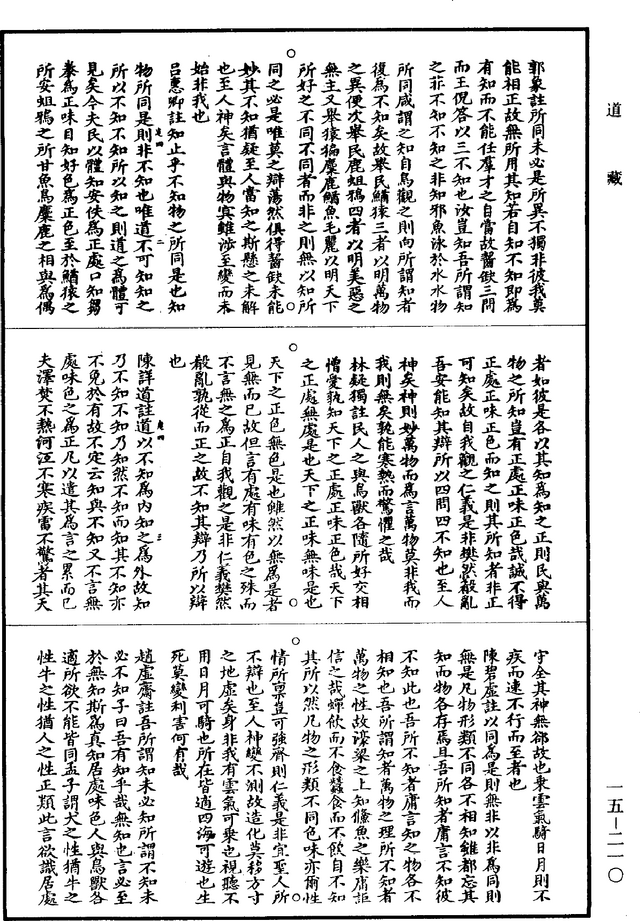 道藏
郭象註所同未必是所異不獨非彼我莫
能相正故無所用其知若自知不知即爲
有知而不能任羣才之自當故齧缺三問
而王倪答以三不知也汝豈知吾所謂知
之非不知不知之非知邪魚泳於水水物
所同咸謂之知自鳥觀之則向所謂知者
復爲不知矣故舉民鰌猨三者以明萬物
之異便次舉民鹿蛆鴉四者以明美惡之
無主又舉猨猵麋鹿鰌魚毛麗以明天下
所好之不同不同者而非之則無以知所
同之必是唯莫之辯蕩然俱得齧缺未能
妙其不知猶疑至人當知之斯懸之未解
也至人神矣言體與物冥雖涉至變而未
始非我也
呂惠卿註知止乎不知物之所同是也知
物所同是則非不知也唯道不可知知之
所以不知不知所以知之則道之爲體可
見矣今夫民以體知安佚爲正處口知芻
豢爲正味目知好色爲正色至於鰌猨之
所安蛆鴉之所甘魚鳥麋鹿之相與爲偶
者如彼是各以其知爲知之正則民與萬
物之所知豈有正處正味正色哉誠不得
正處正味正色而知之則其所知者非正
可知矣故自我觀之仁義是非樊然殽亂
吾安能知其辯所以四問四不知也至人
神矣神則妙萬物而爲言萬物莫非我而
我則無矣孰能寒熱而驚懼之哉
林疑獨註民人之與鳥獸各隨所好交相
憎愛孰知天下之正處正味正色哉天下
之正處無處是也天下之正味無味是也
天下之正色無色是也雖然以無爲是者
見無而已故但言有處有味有色之殊而
不言無之爲正自我觀之是非仁義樊然
殽亂孰從而正之故不知其辯乃所以辯
也
陳詳道註道以不知爲內知之爲外故知
乃不知不知乃知然不知而知其不知亦
不免於有故不定云知與不知又不言無
處味色之爲正凡以遣其爲言之累而已
夫澤焚不熱河沍不寒疾雷不驚者其天
守全其神無郤故也乘雲氣騎日月則不
疾而速不行而至者也
陳碧虛註以同爲是則無非以非爲同則
無是凡物形類不同各不相知雖都忘其
知而物各存焉且吾所知者庸言不知彼
不知此也吾所不知者庸言知之物各不
相知也吾所謂知者萬物之理所不知者
萬物之性故濠梁之上知鯈魚之樂庸詎
信之哉蟬飲而不食蠶食而不飲自不知
其所以然凡物之形類不同色味亦爾性
情所稟豈可強齊則仁義是非宜聖人所
不辯也至人神變不測故造化莫移方寸
之地虛矣身非我有雲氣可乗也視聽不
用日月可騎也所在皆適四海可遊也生
死莫變利害何有哉
趙虛齋註吾所謂知未必知所謂不知未
必不知子曰吾有知乎哉無知也言必至
於無知斯爲真知居處味色人與鳥獸各
適所欲不能皆同孟子謂犬之性猶牛之
性牛之性猶人之性正類此言欲識居處
一五—二一〇